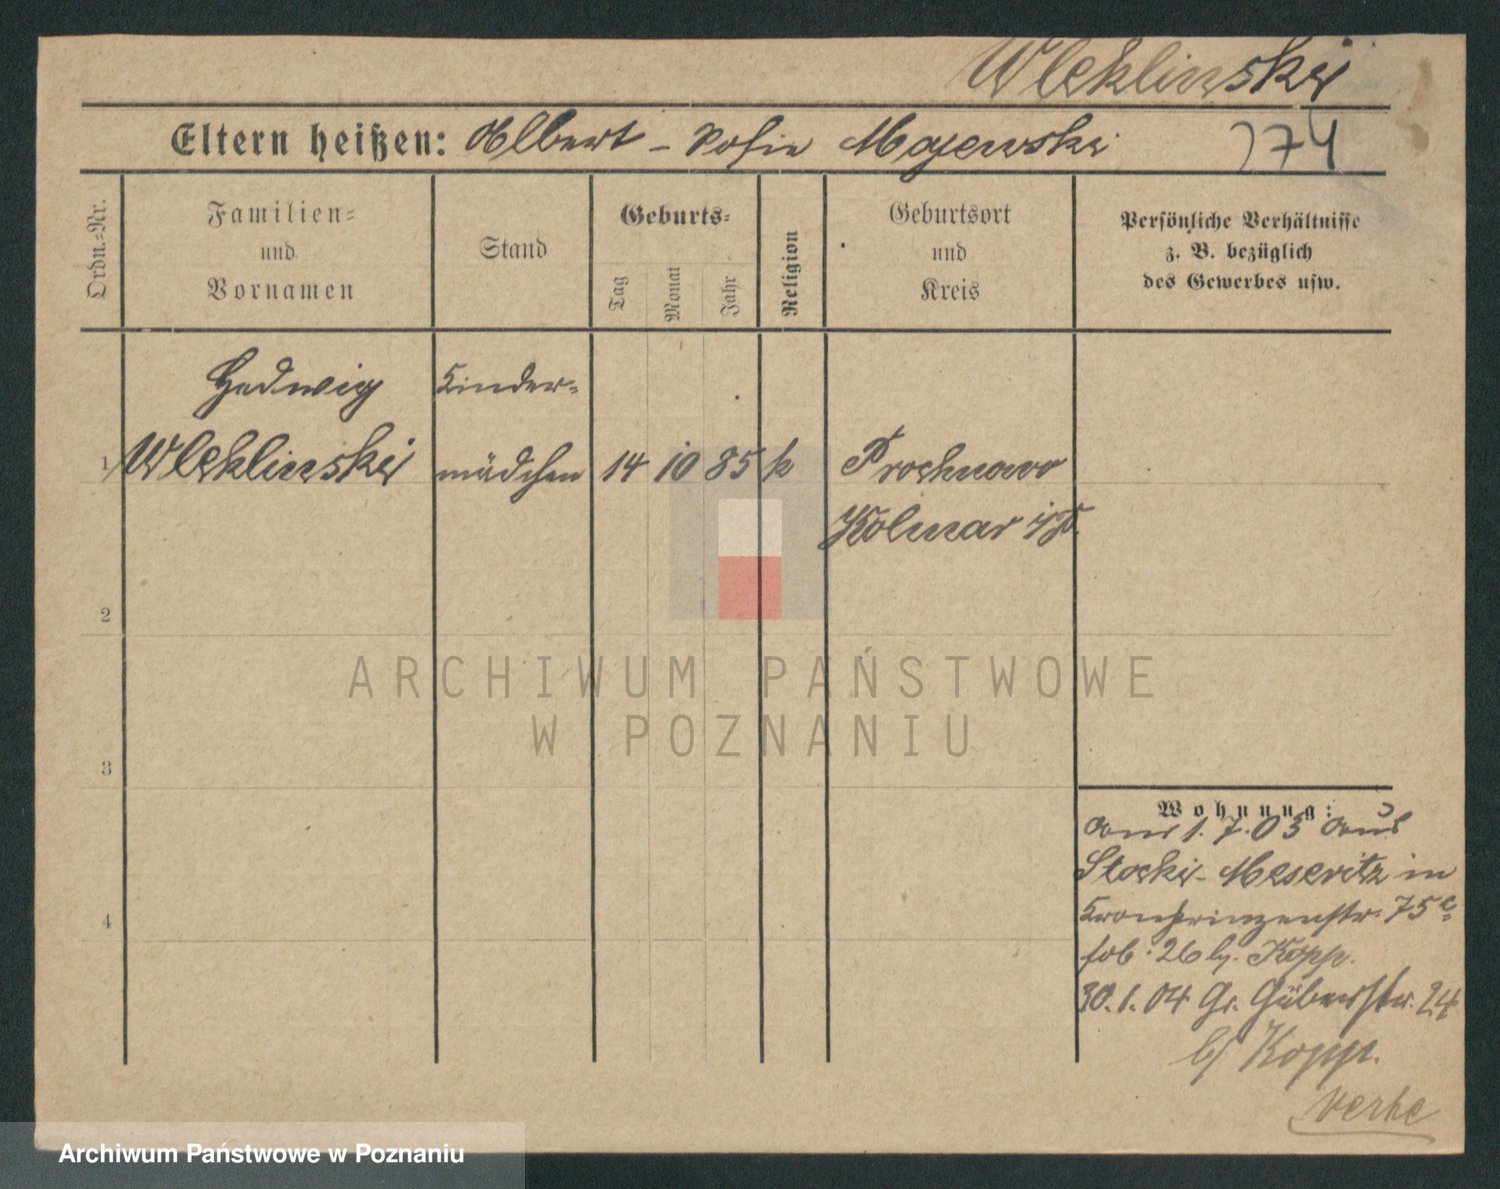 Wleklinski
Eltern heißen: Albert - Sofie Majewski 174
Ordn.-Nr.
Familien-
und
Vornamen
Stand
Geburts-
Tag
Monat
Jahr
Religion
Geburtsort
und
Kreis
Persönliche Verhältnisse
z. B. bezüglich
des Gewerbes usw.
Hedwig Kinder-
1 Wleklinski mädchen 14 10 85 k Prochnowo
Kolmar i/P.
2
3
4
Wohnung:
am 1. 7. 03 aus
Stocki-Meseritz in
Kronprinzenstr. 75
26 Kopp.
30. 1. 04 Gr. 24
b/ Kopp.
ARCHIWUM PAŃSTWOWE
W POZNANIU
Archiwum Państwowe w Poznaniu